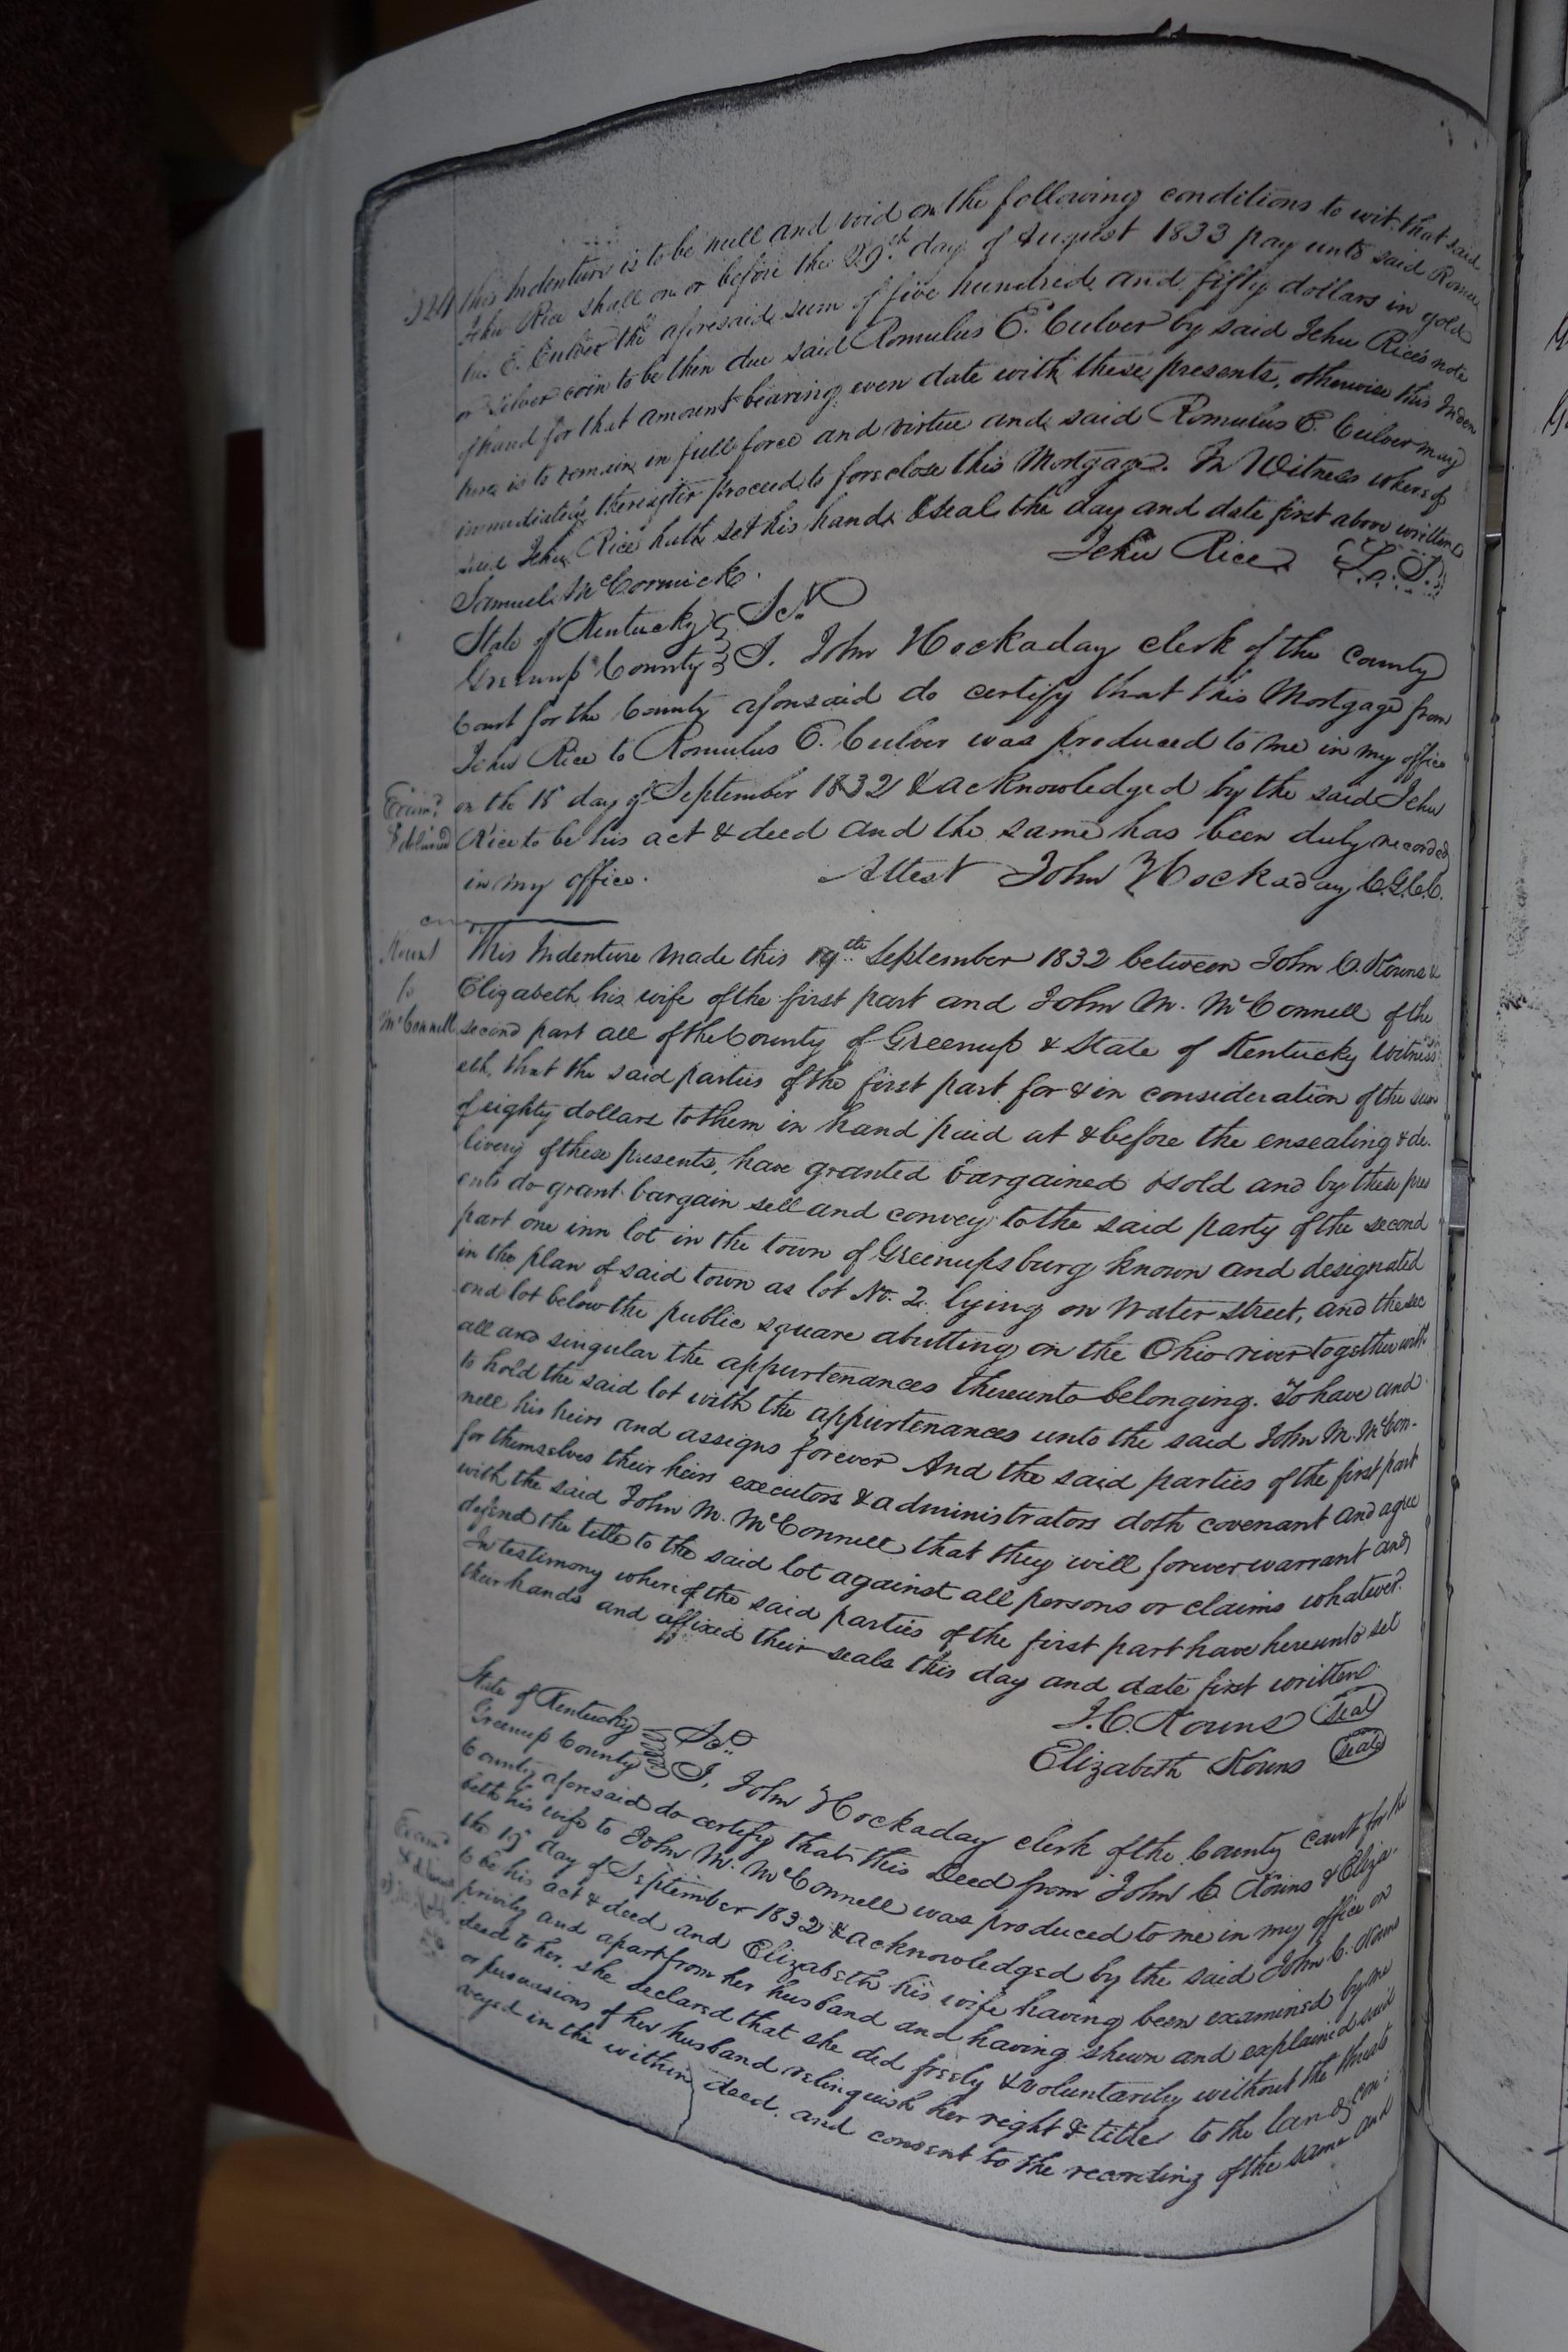 324 this Indenture is to be null and void on the following conditions to wit. that said
Jehu Rice shall on or before the 29th day of August 1833 pay unto said Romu
lus E. Culver the aforesaid sum of five hundred and fifty dollars in gold
or silver coin to be then due said Romulus E. Culver by said Jehu Rice's note
of hand for that amount bearing even date with these presents, otherwise this Inden
ture is to remain in full force and virtue and said Romulus E. Culver may
immediately thereafter proceed to foreclose this Mortgage. In Witness whereof
said Jehu Rice hath set his hand & seal the day and date first above written
Jehu Rice L.S.
Samuel McCormick.
State of Kentucky } Sct.
Greenup County } I, John Hockaday clerk of the County
Court for the County aforesaid do certify that this Mortgage from
Jehu Rice to Romulus E. Culver was produced to me in my office
on the 18 day of September 1832 & acknowledged by the said Jehu
Rice to be his act & deed and the same has been duly recorded
in my office. Attest John Hockaday C.G.C.C.
Exam.d
& delivered
Kouns
to
McConnell
This Indenture made this 19th September 1832 between John C. Kouns &
Elizabeth his wife of the first part and John M. McConnell of the
second part all of the County of Greenup & State of Kentucky Witness
eth, that the said parties of the first part for & in consideration of the sum
of eighty dollars to them in hand paid at & before the ensealing & de.
livery of these presents, have granted bargained & sold and by these pres
ents do grant bargain sell and convey to the said party of the second
part one inn lot in the town of Greenupsburg known and designated
in the plan of said town as lot No. 2. lying on Water street, and the sec
ond lot below the public square abutting on the Ohio river together with
all and singular the appurtenances thereunto belonging. To have and
to hold the said lot with the appurtenances unto the said John M. McCon-
nell his heirs and assigns forever And the said parties of the first part
for themselves their heirs executors & administrators doth covenant and agree
with the said John M. McConnell that they will forever warrant and
defend the title to the said lot against all persons or claims whatever.
In testimony whereof the said parties of the first part have hereunto set
their hands and affixed their seals this day and date first written.
J. C. Kouns seal
Elizabeth Kouns seal
State of Kentucky } Sct.
Greenup County } I, John Hockaday clerk of the County court for the
County aforesaid do certify that this Deed from John C. Kouns & Eliza-
beth his wife to John M. McConnell was produced to me in my office on
the 19 day of September 1832 & acknowledged by the said John C. Kouns
to be his act & deed and Elizabeth his wife having been examined by me
privily and apart from her husband and having shewn and explained said
deed to her, she declared that she did freely & voluntarily without the threats
or persuasions of her husband relinquish her right & title to the land con-
veyed in the within deed, and consent to the recording of the same and
Exam.d